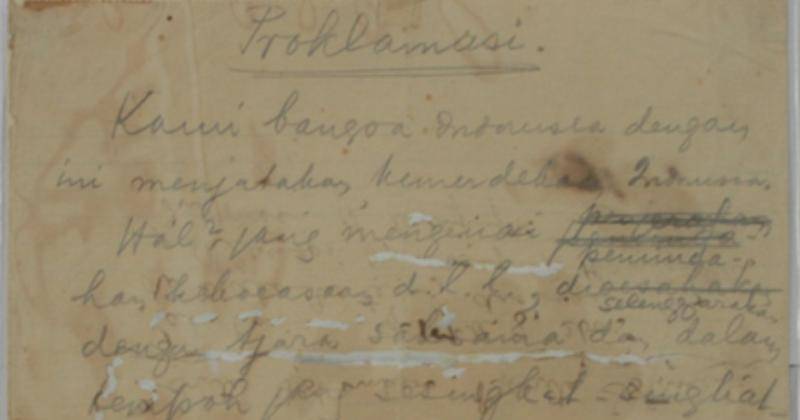 Proklamasi.
Kami bangsa Indonesia dengan
ini menjatakan kemerdekaan Indonesia.
Hal² jang mengenai
peminda-
han kekoeasaan d.l.l., dioesahakan
selenggarakan
dengan tjara saksama dan dalam
tempoh jang sesingkat-singkat